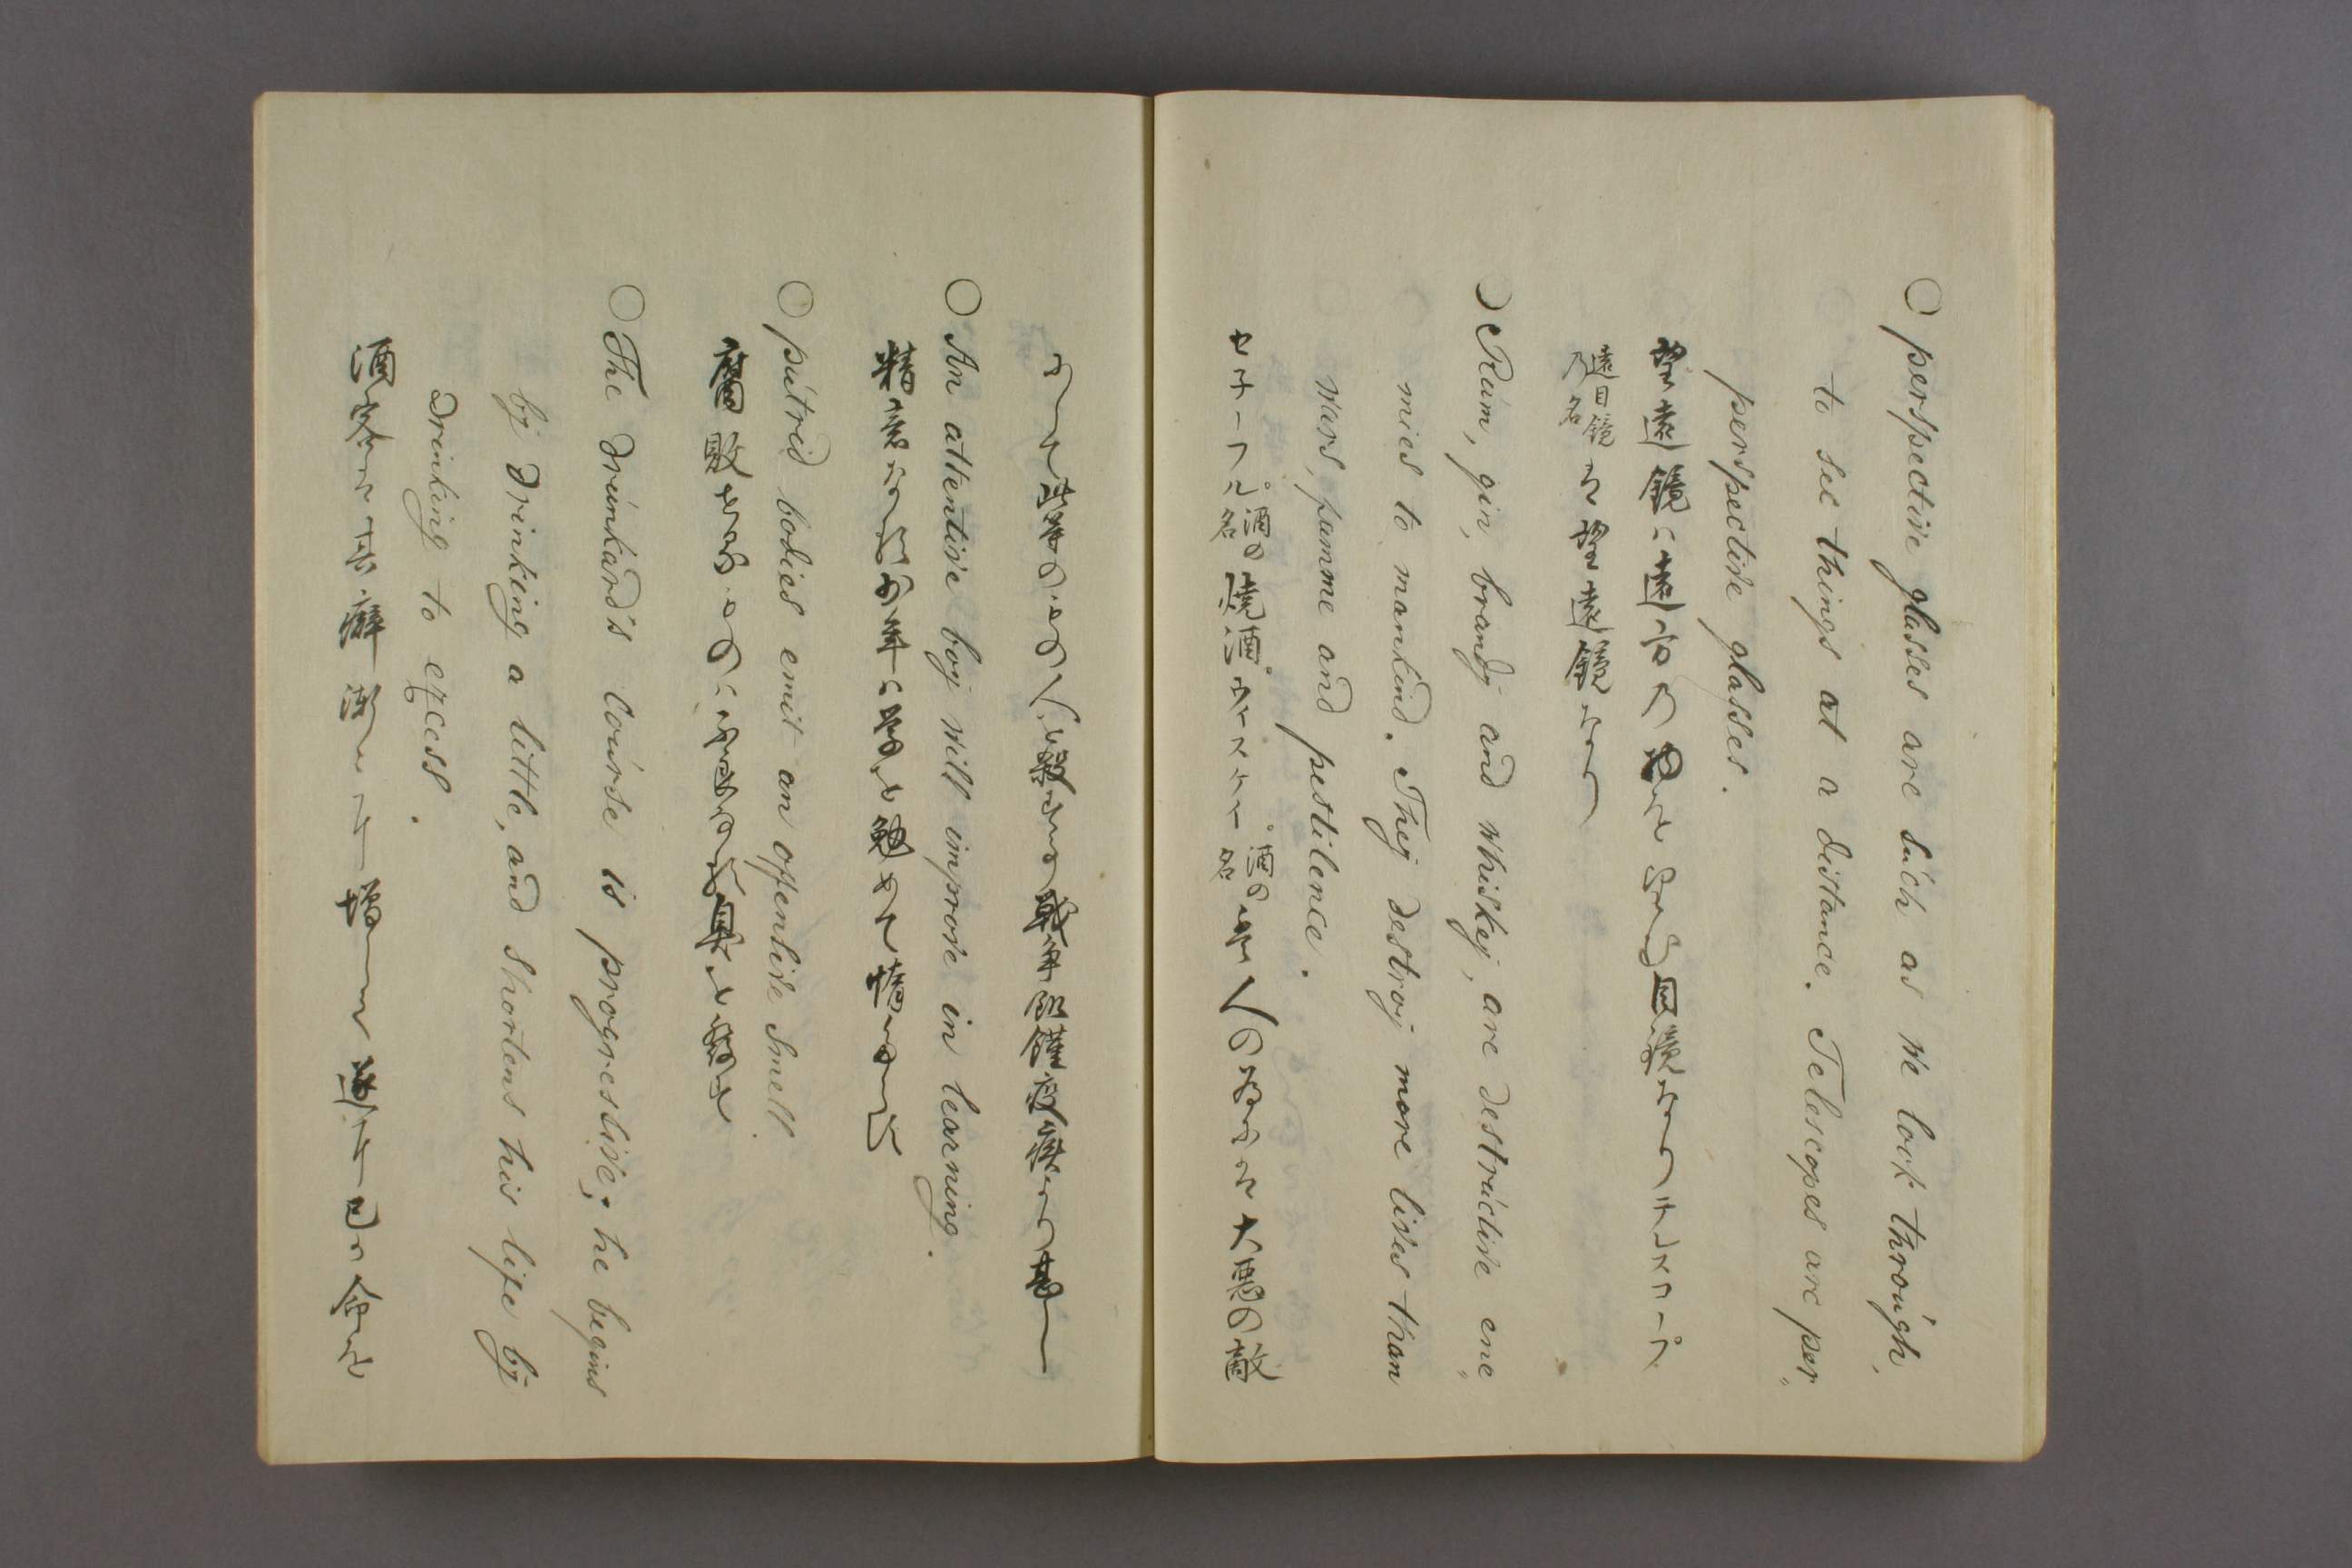 ○ perspective glasses are such as we look through,
to see things at a distance. Telescopes are per〃
perspective glasses.
望遠鏡ハ遠方の物を見る目鏡なりテレスコープ
遠目鏡乃名も望遠鏡なり
○ Rum, gin, brandy and whiskey, are destructive ene〃
mies to mankind. They destroy more lives than
wars, famme and pestilence.
セ子ーフル。酒の名 焼酒。ウイスケイー。酒の名 人の為に大悪の敵
して此等のもの人を殺すの戦争飢饉疫癘より甚し
○ An attentive boy will improve in learning.
精意なる少年ハ学を勉めて惰
○ putrid bodies emit an offensive smell.
腐敗せるものハ 臭を發す
○ The drunkard's course is progressive; he begins
by drinking a little, and shortens his life by
drinking to excess.
酒客 其癖漸 増 遂 己の命を